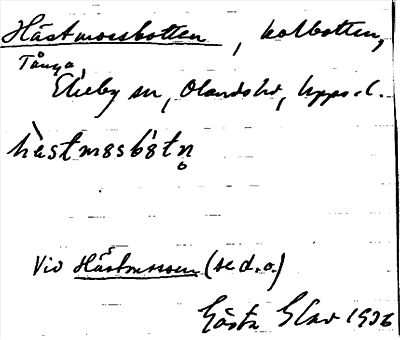 Hästmossbotten, kolbotten,
Tånga,
Ekeby sn, Olands hd, Upps. l.
hästmɔsbɔ́tn̥
Vid Hästmossen (se d. o.)
Gösta 1936